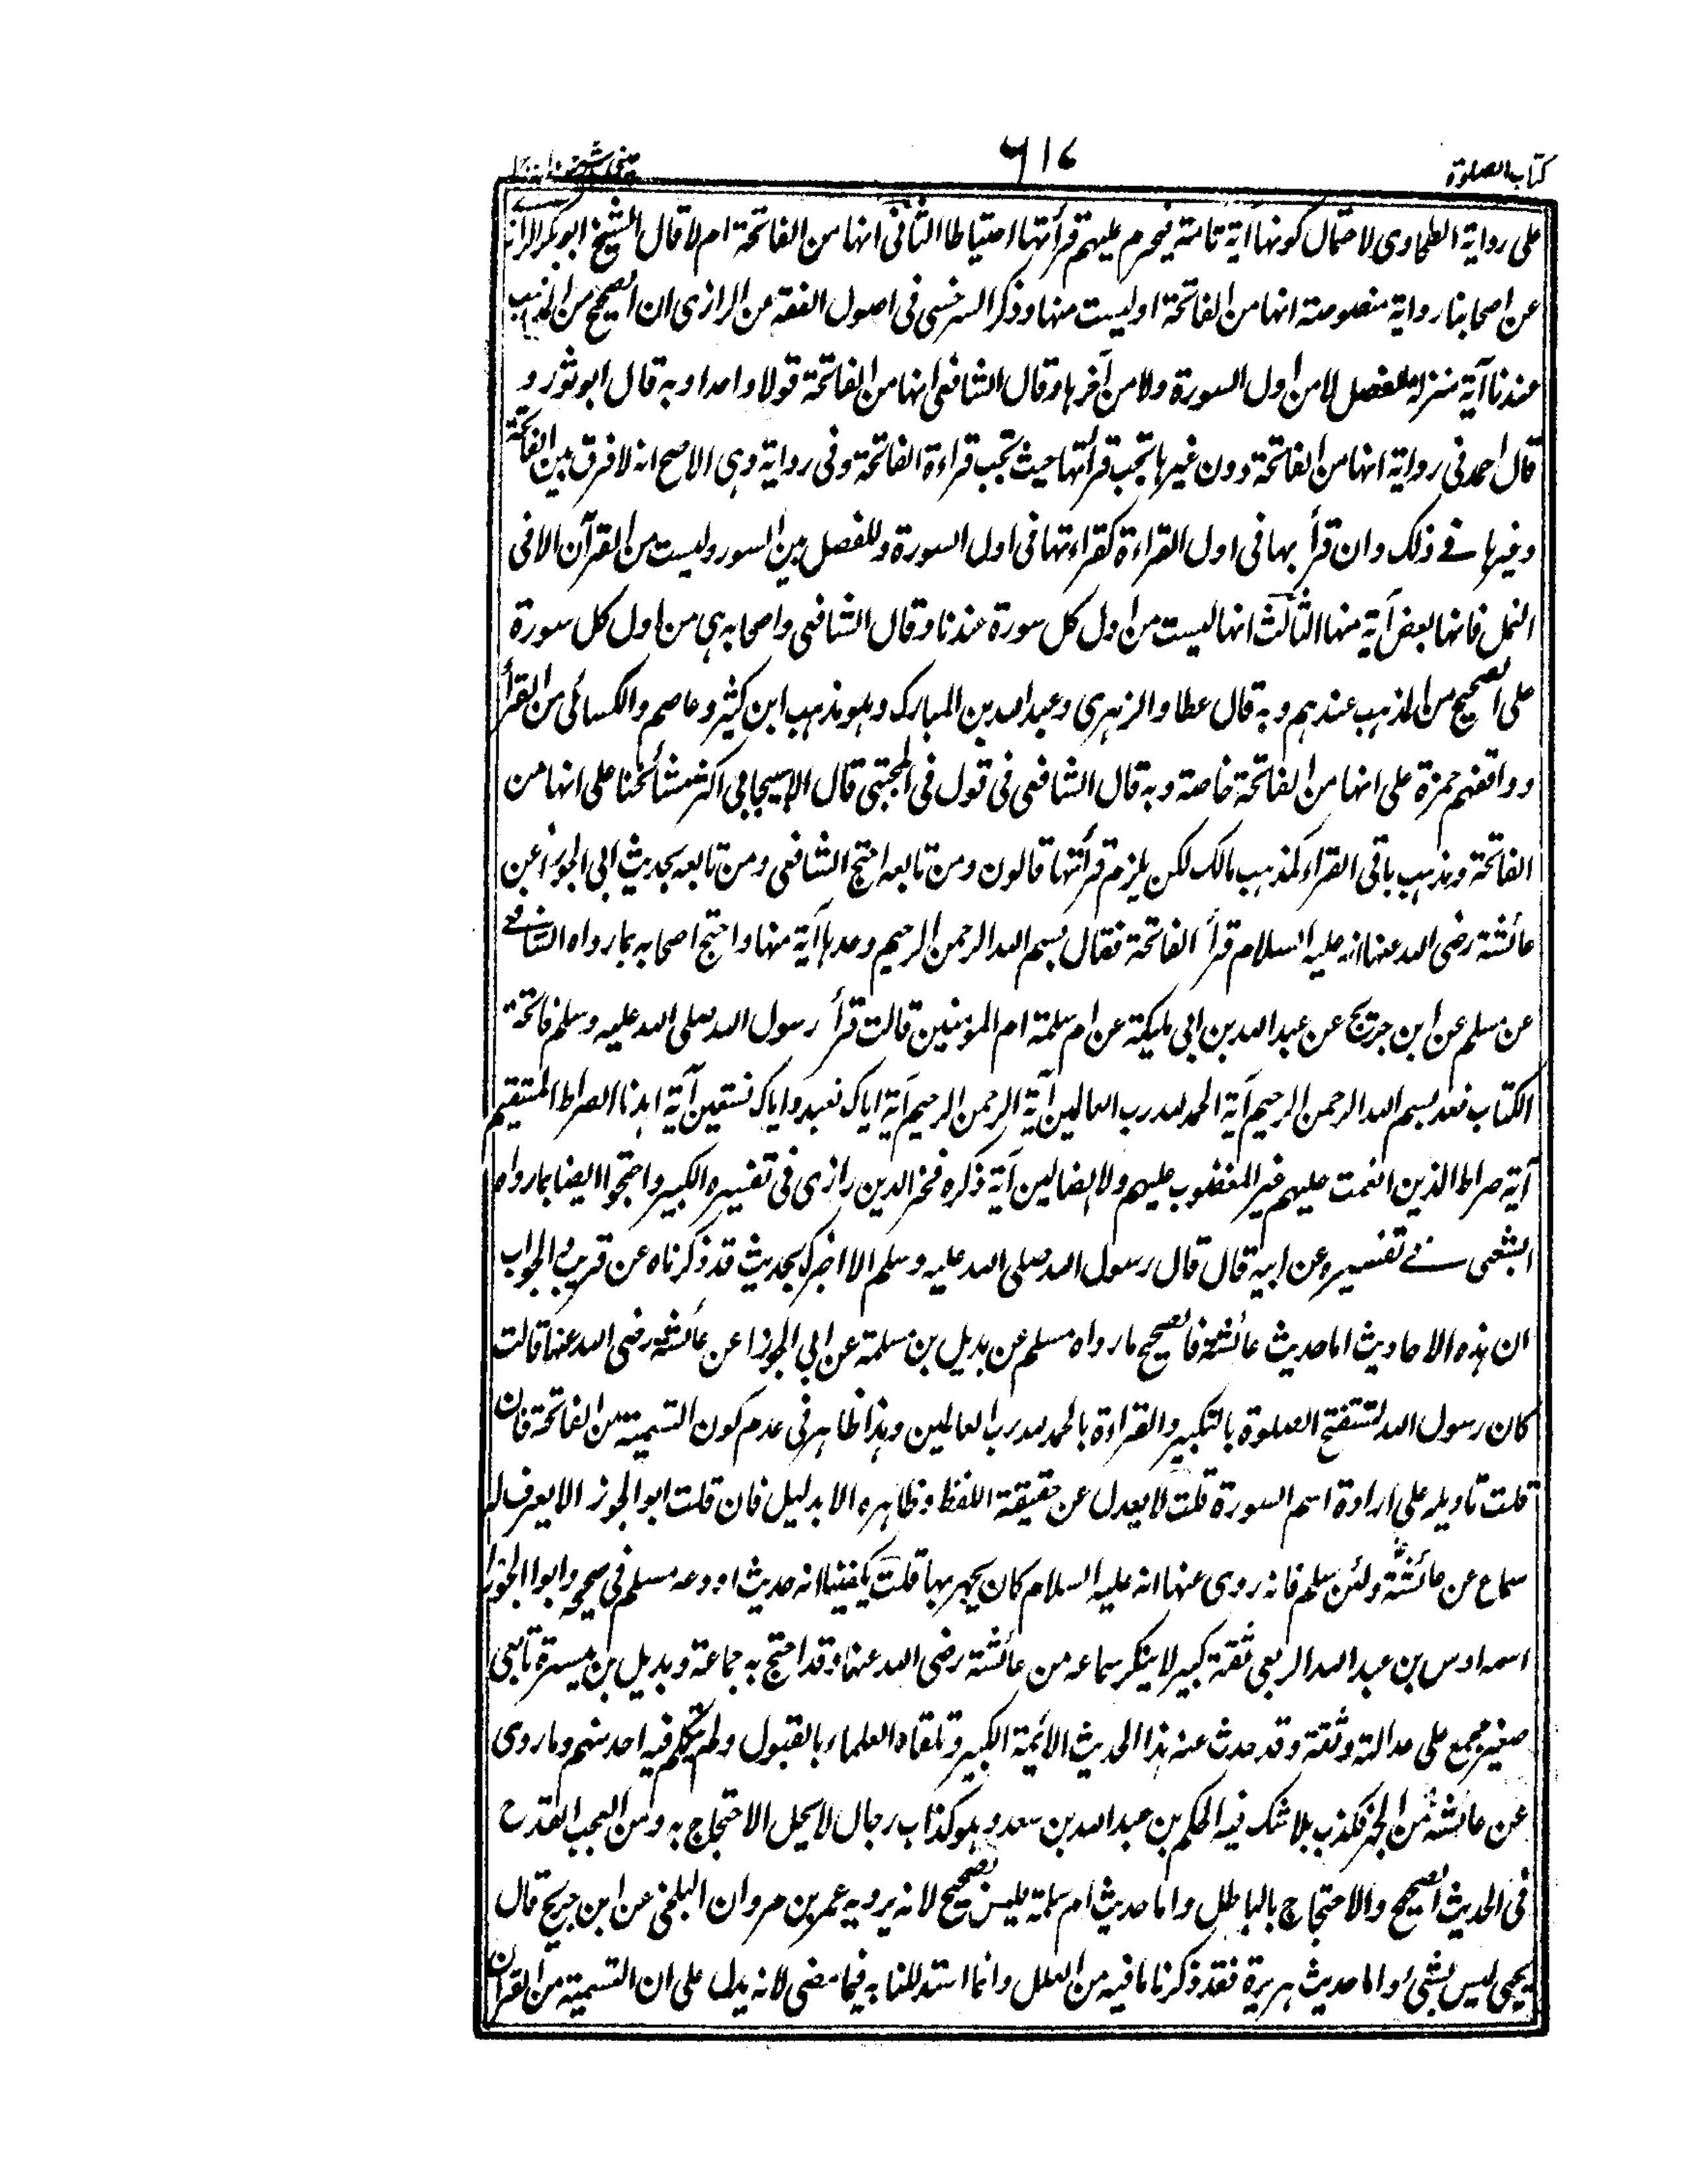 كتاب الصلوة
٦١٧
على رواية الطحاوى لاحتمال كونها آية تامة فيحرم عليهم قرأتها احتياطا الثانى انها من الفاتحة ام لا قال الشيخ ابو بكر الرا
عن اصحابنا رواية منصوصة انها من الفاتحة او ليست منها وذكر السرخسى فى اصول الفقه عن الرازى ان الصحيح من المذهب
عندنا آية منزلة للفصل لا من اول السورة ولا من آخرها وقال الشافعى انها من الفاتحة قولا واحدا وبه قال ابو ثور و
قال احمد فى رواية انها من الفاتحة دون غيرها تجب قرأتها حيث تجب قراءة الفاتحة وفى رواية وهى الاصح انه لا فرق بين الفاتحة
وغيرها فى ذلك وان قرأ بها فى اول القراءة كقراءتها فى اول السورة وللفصل بين السور وليست من القرآن الا فى
النمل فانها بعض آية منها الثالث انها ليست من اول كل سورة عندنا وقال الشافعى واصحابه هى من اول كل سورة
على الصحيح من المذهب عندهم وبه قال عطا والزهرى وعبد الله بن المبارك وهو مذهب ابن كثير وعاصم والكسائى من القرأ
ووافقهم حمزة على انها من الفاتحة خاصة وبه قال الشافعى فى قول فى المجتبى قال الاسبيجابى اكثر مشائخنا على انها من
الفاتحة ومذهب باقى القراء كمذهب مالك لكن يلزم قرأتها قالون ومن تابعه احتج الشافعى ومن تابعه بحديث ابى الجوزا عن
عائشة رضى الله عنها انه عليه السلام قرأ الفاتحة فقال بسم الله الرحمن الرحيم وعدها آية منها واحتج اصحابه بما رواه الشافعى
عن مسلم عن ابن جريج عن عبد الله بن ابى مليكة عن ام سلمة ام المومنين قالت قرأ رسول الله صلى الله عليه وسلم فاتحة
الكتاب فعد بسم الله الرحمن الرحيم آية الحمد لله رب العالمين آية الرحمن الرحيم آية اياك نعبد واياك نستعين آية اهدنا الصراط المستقيم
آية صراط الذين انعمت عليهم غير المغضوب عليهم ولا الضالين آية ذكره فخر الدين رازى فى تفسيره الكبير واحتجوا ايضا بما رواه
الشعبى فى تفسيره عن ابيه قال قال رسول الله صلى الله عليه وسلم الا اخبرك بحديث قد ذكرناه عن قريب والجواب
ان هذه الاحاديث اما حديث عائشة فالصحيح ما رواه مسلم عن بديل بن مسلمة عن ابى الجوزا عن عائشة رضى الله عنها قالت
كان رسول الله تستفتح الصلوة بالتكبير والقراءة بالحمد لله رب العالمين وهذا ظاهر فى عدم كون التسمية من الفاتحة فان
قلت تاويله على ارادة اسم السورة قلت لا يعدل عن حقيقة اللفظ وظاهره الا بدليل فان قلت ابو الجوزا لا يعرف له
سماع عن عائشة ولئن سلم فانه روى عنها انه عليه السلام كان يجهر بها قلت يكفينا انه حديث اودعه مسلم فى صحيحه وابو الجوزا
اسمه اوس بن عبد الله الربعى ثقة كبير لا ينكر سماعه من عائشة رضى الله عنها وقد احتج به جماعة وبديل بن ميسرة تابعى
صغير مجمع على عدالته وثقته وقد حدث عنه هذا الحديث الائمة الكبير وتلقاه العلماء بالقبول ولم يتكلم فيه احد منهم وما روى
عن عائشة من الجهر فكذب بلا شك فيه الحكم بن عبد الله بن سعد وهو كذاب رجال لا يحل الاحتجاج به ومن العجب القدح
فى الحديث الصحيح والاحتجاج بالباطل واما حديث ام سلمة فليس بصحيح لانه يرويه عمر بن مروان البلخى عن ابن جريج قال
يحيى ليس بشئ واما حديث هريرة فقد ذكرنا ما فيه من العلل وانما استدللنا به فيما مضى لانه يدل على ان التسمية من القرآن